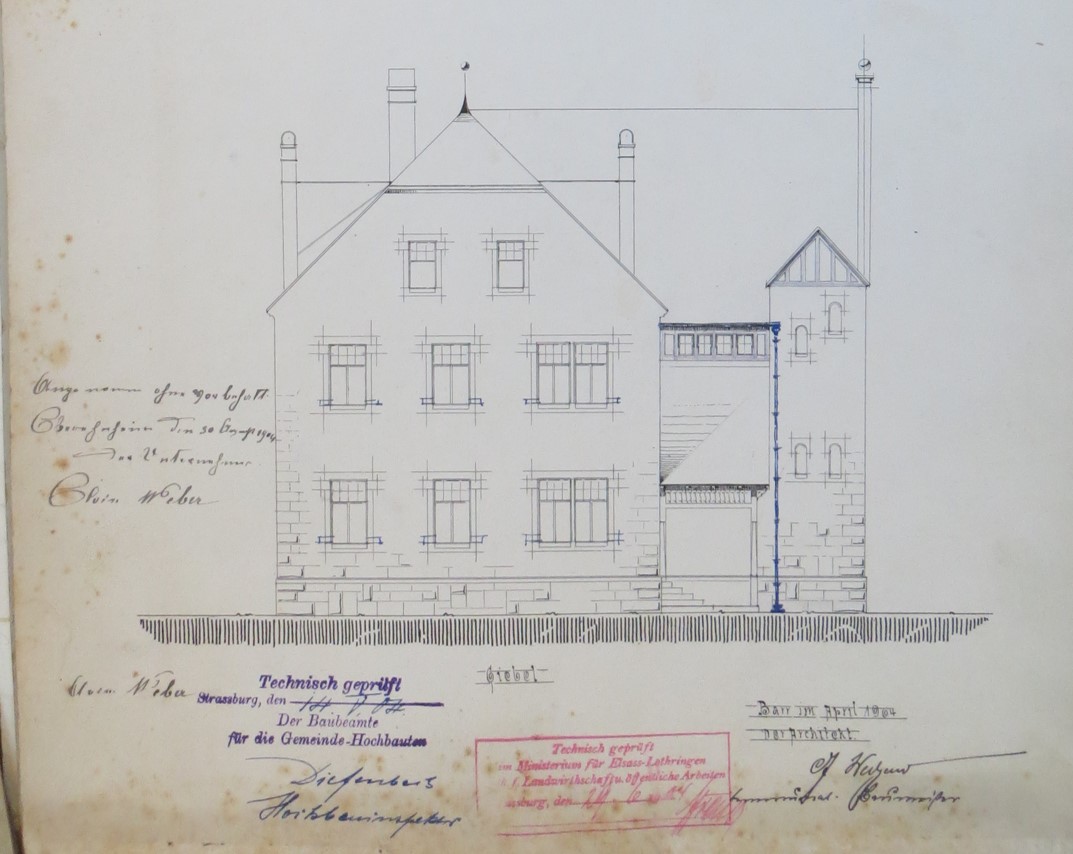 ohne Vorbehalt
den 30
der Unternehmer
Weber
Weber
Giebel
Technisch geprüft
Strassburg, den 14 V 04.
Der Baubeamte
für die Gemeinde-Hochbauten
Diefenbach
Hochbauinspektor
Technisch geprüft
im Ministerium für Elsass-Lothringen
Landwirthschaft u. öffentliche Arbeiten
den
Barr im April 1904
Der Architekt.
Baumeister